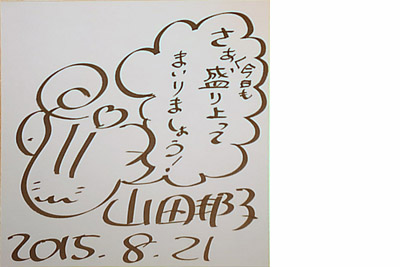 さぁ今日も
盛り上って
まいりましょう!
山田邦子
2015.8.21